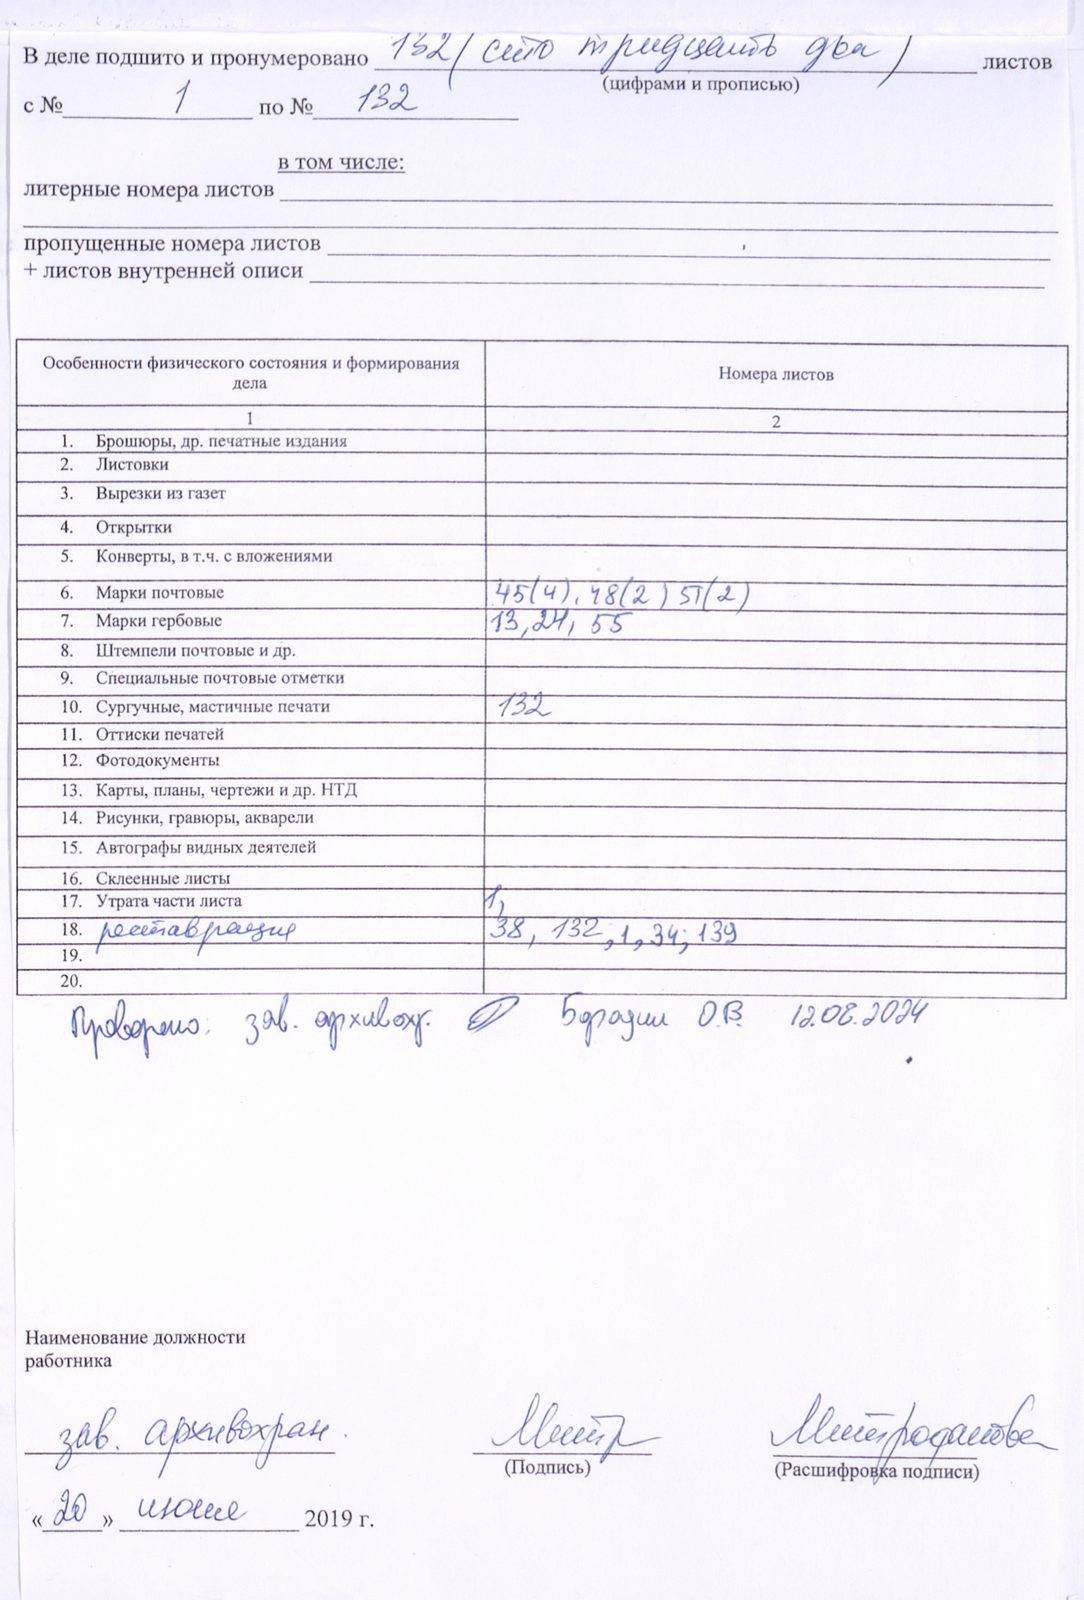 В деле подшито и пронумеровано 132 (сто тридцать два) листов
(цифрами и прописью)
с № 1 по № 132
в том числе:
литерные номера листов
пропущенные номера листов
+ листов внутренней описи
Особенности физического состояния и формирования дела Номера листов
1 2
1. Брошюры, др. печатные издания
2. Листовки
3. Вырезки из газет
4. Открытки
5. Конверты, в т.ч. с вложениями
6. Марки почтовые 45(4), 48(2) 51(2)
7. Марки гербовые 13, 24, 55
8. Штемпели почтовые и др.
9. Специальные почтовые отметки
10. Сургучные, мастичные печати 132
11. Оттиски печатей
12. Фотодокументы
13. Карты, планы, чертежи и др. НТД
14. Рисунки, гравюры, акварели
15. Автографы видных деятелей
16. Склеенные листы
17. Утрата части листа 1,
18. реставрация 38, 132, 1, 34; 139
19.
20.
Проверено: зав. архивохр. О.В. 12.08.2024
Наименование должности
работника
зав. архивохран. Митр Митрофанова
(Подпись) (Расшифровка подписи)
«20» июня 2019 г.